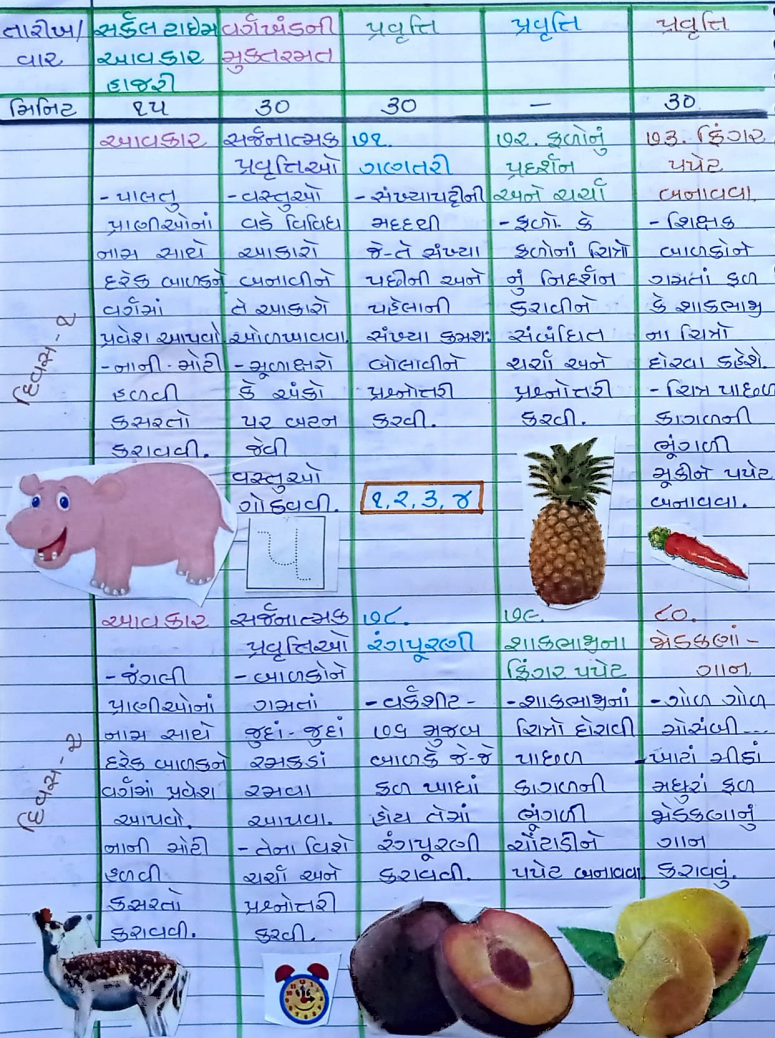 તારીખ/
વાર
સર્કલ ટાઇમ
આવકાર
હાજરી
વર્ગખંડની
મુક્તરમત
પ્રવૃત્તિ
પ્રવૃત્તિ
પ્રવૃત્તિ
મિનિટ
૧૫
30
30
—
30
દિવસ - ૧
આવકાર
- પાલતુ
પ્રાણીઓનાં
નામ સાથે
દરેક બાળકને
વર્ગમાં
પ્રવેશ આપવો
- નાની - મોટી
હળવી
કસરતો
કરાવવી.
સર્જનાત્મક
પ્રવૃત્તિઓ
- વસ્તુઓ
વડે વિવિધ
આકારો
બનાવીને
તે આકારો
ઓળખાવવા
- મૂળાક્ષરો
કે અંકો
પર બટન
જેવી
વસ્તુઓ
ગોઠવવી.
૫
૭૧.
ગણતરી
- સંખ્યાપટ્ટીની
મદદથી
જે-તે સંખ્યા
પછીની અને
પહેલાની
સંખ્યા ક્રમશઃ
બોલાવીને
પ્રશ્નોત્તરી
કરવી.
૧, ૨, ૩, ૪
૭૨. ફળોનું
પ્રદર્શન
અને ચર્ચા
- ફળો કે
ફળોનાં ચિત્રો
નું નિદર્શન
કરાવીને
સંબંધિત
ચર્ચા અને
પ્રશ્નોત્તરી
કરવી.
૭૩. ફિંગર
પપેટ
બનાવવા
- શિક્ષક
બાળકોને
ગમતાં ફળ
કે શાકભાજી
ના ચિત્રો
દોરવા કહેશે.
- ચિત્ર પાછળ
કાગળની
ભૂંગળી
મૂકીને પપેટ
બનાવવા.
દિવસ - ૨
આવકાર
- જંગલી
પ્રાણીઓનાં
નામ સાથે
દરેક બાળકને
વર્ગમાં પ્રવેશ
આપવો.
નાની મોટી
હળવી
કસરતો
કરાવવી.
સર્જનાત્મક
પ્રવૃત્તિઓ
- બાળકોને
ગમતાં
જુદાં - જુદાં
રમકડાં
રમવા
આપવા.
- તેના વિશે
ચર્ચા અને
પ્રશ્નોત્તરી
કરવી.
૭૮.
રંગપૂરણી
- વર્કશીટ -
૭૬ મુજબ
બાળકે જે-જે
ફળ ખાધાં
હોય તેમાં
રંગપૂરણી
કરાવવી.
૭૯.
શાકભાજીના
ફિંગર પપેટ
- શાકભાજીનાં
ચિત્રો દોરાવી
પાછળ
કાગળની
ભૂંગળી
ચોંટાડીને
પપેટ બનાવવા
૮૦.
જોડકણાં -
ગાન
- ગોળ ગોળ
મોસંબી...
- ખાટાં મીઠાં
મધુરાં ફળ
જોડકણાનું
ગાન
કરાવવું.